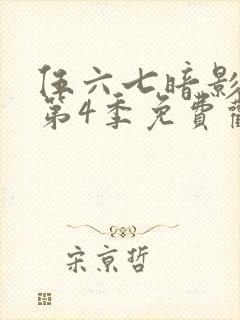 伍六七暗影
第4季免費
宋京哲